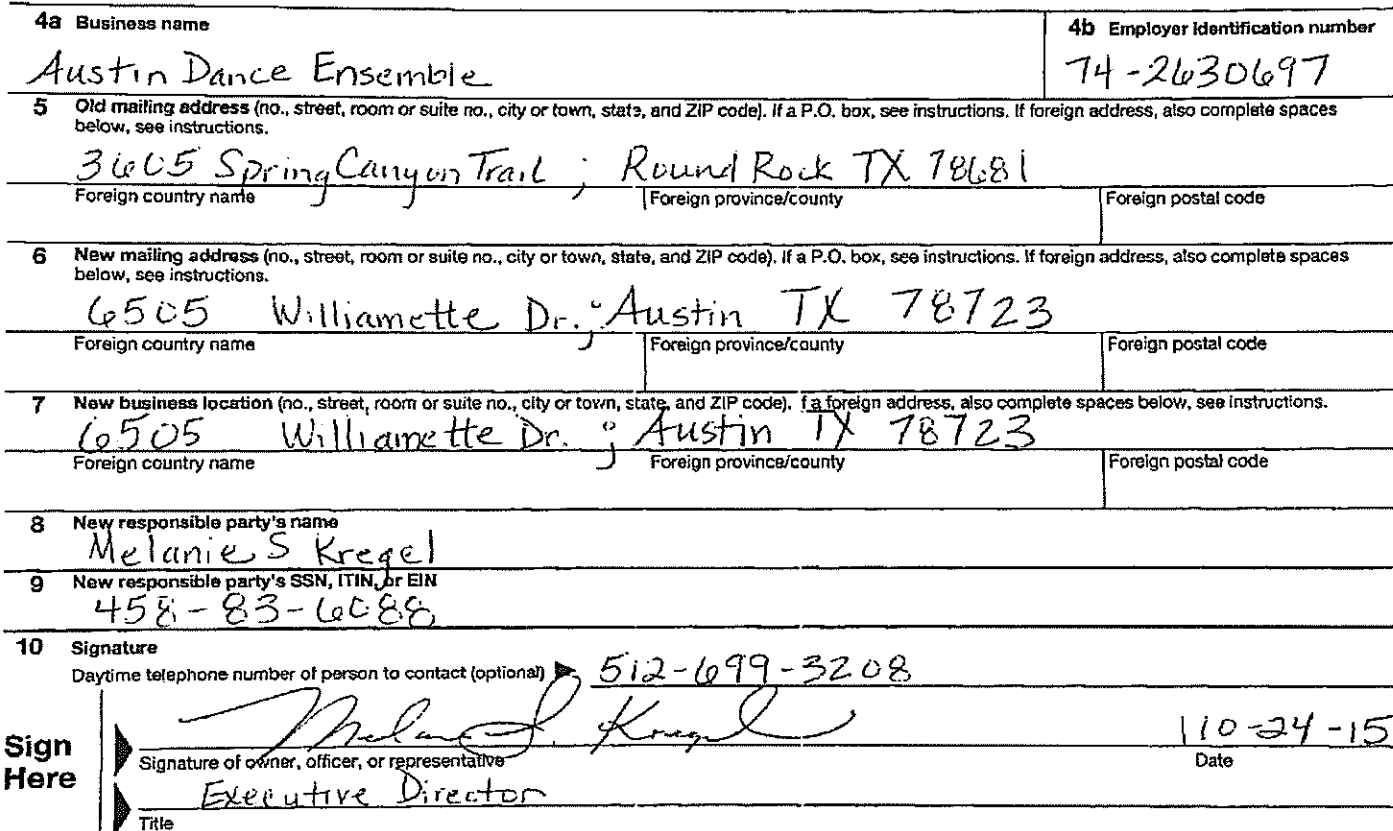 4a Business name
4b Employer identification number
Austin Dance Ensemble
74-2630697
5 Old mailing address (no., street, room or suite no., city or town, state, and ZIP code). If a P.O. box, see instructions. If foreign address, also complete spaces
below, see instructions.
3605 Spring Canyon Trail ; Round Rock TX 78681
Foreign country name
Foreign province/county
Foreign postal code
6 New mailing address (no., street, room or suite no., city or town, state, and ZIP code). If a P.O. box, see instructions. If foreign address, also complete spaces
below, see instructions.
6505 Williamette Dr.; Austin TX 78723
Foreign country name
Foreign province/county
Foreign postal code
7 New business location (no., street, room or suite no., city or town, state, and ZIP code). f a foreign address, also complete spaces below, see instructions.
6505 Williamette Dr. ; Austin TX 78723
Foreign country name
Foreign province/county
Foreign postal code
8 New responsible party's name
Melanie S Kregel
9 New responsible party's SSN, ITIN, or EIN
458-83-6088
10 Signature
Daytime telephone number of person to contact (optional) ▶ 512-699-3208
Melanie S. Kregel
10-24-15
Sign
Here
Signature of owner, officer, or representative
Date
Executive Director
Title